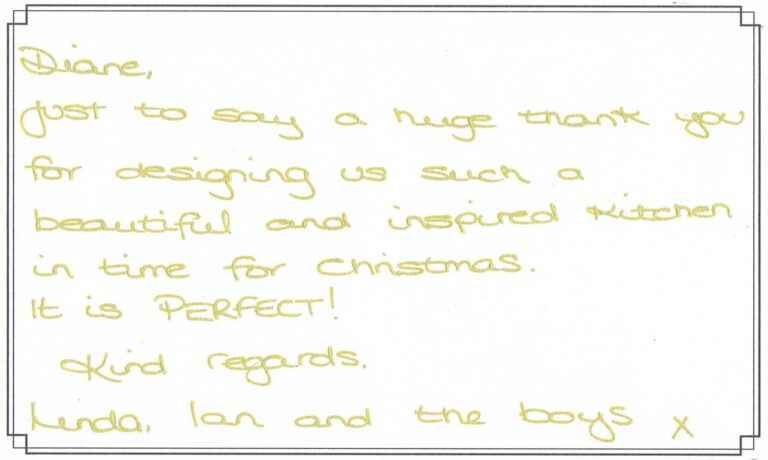 Diane,
Just to say a huge thank you
for designing us such a
beautiful and inspired kitchen
in time for Christmas.
It is PERFECT!
Kind regards.
Linda, Ian and the boys x